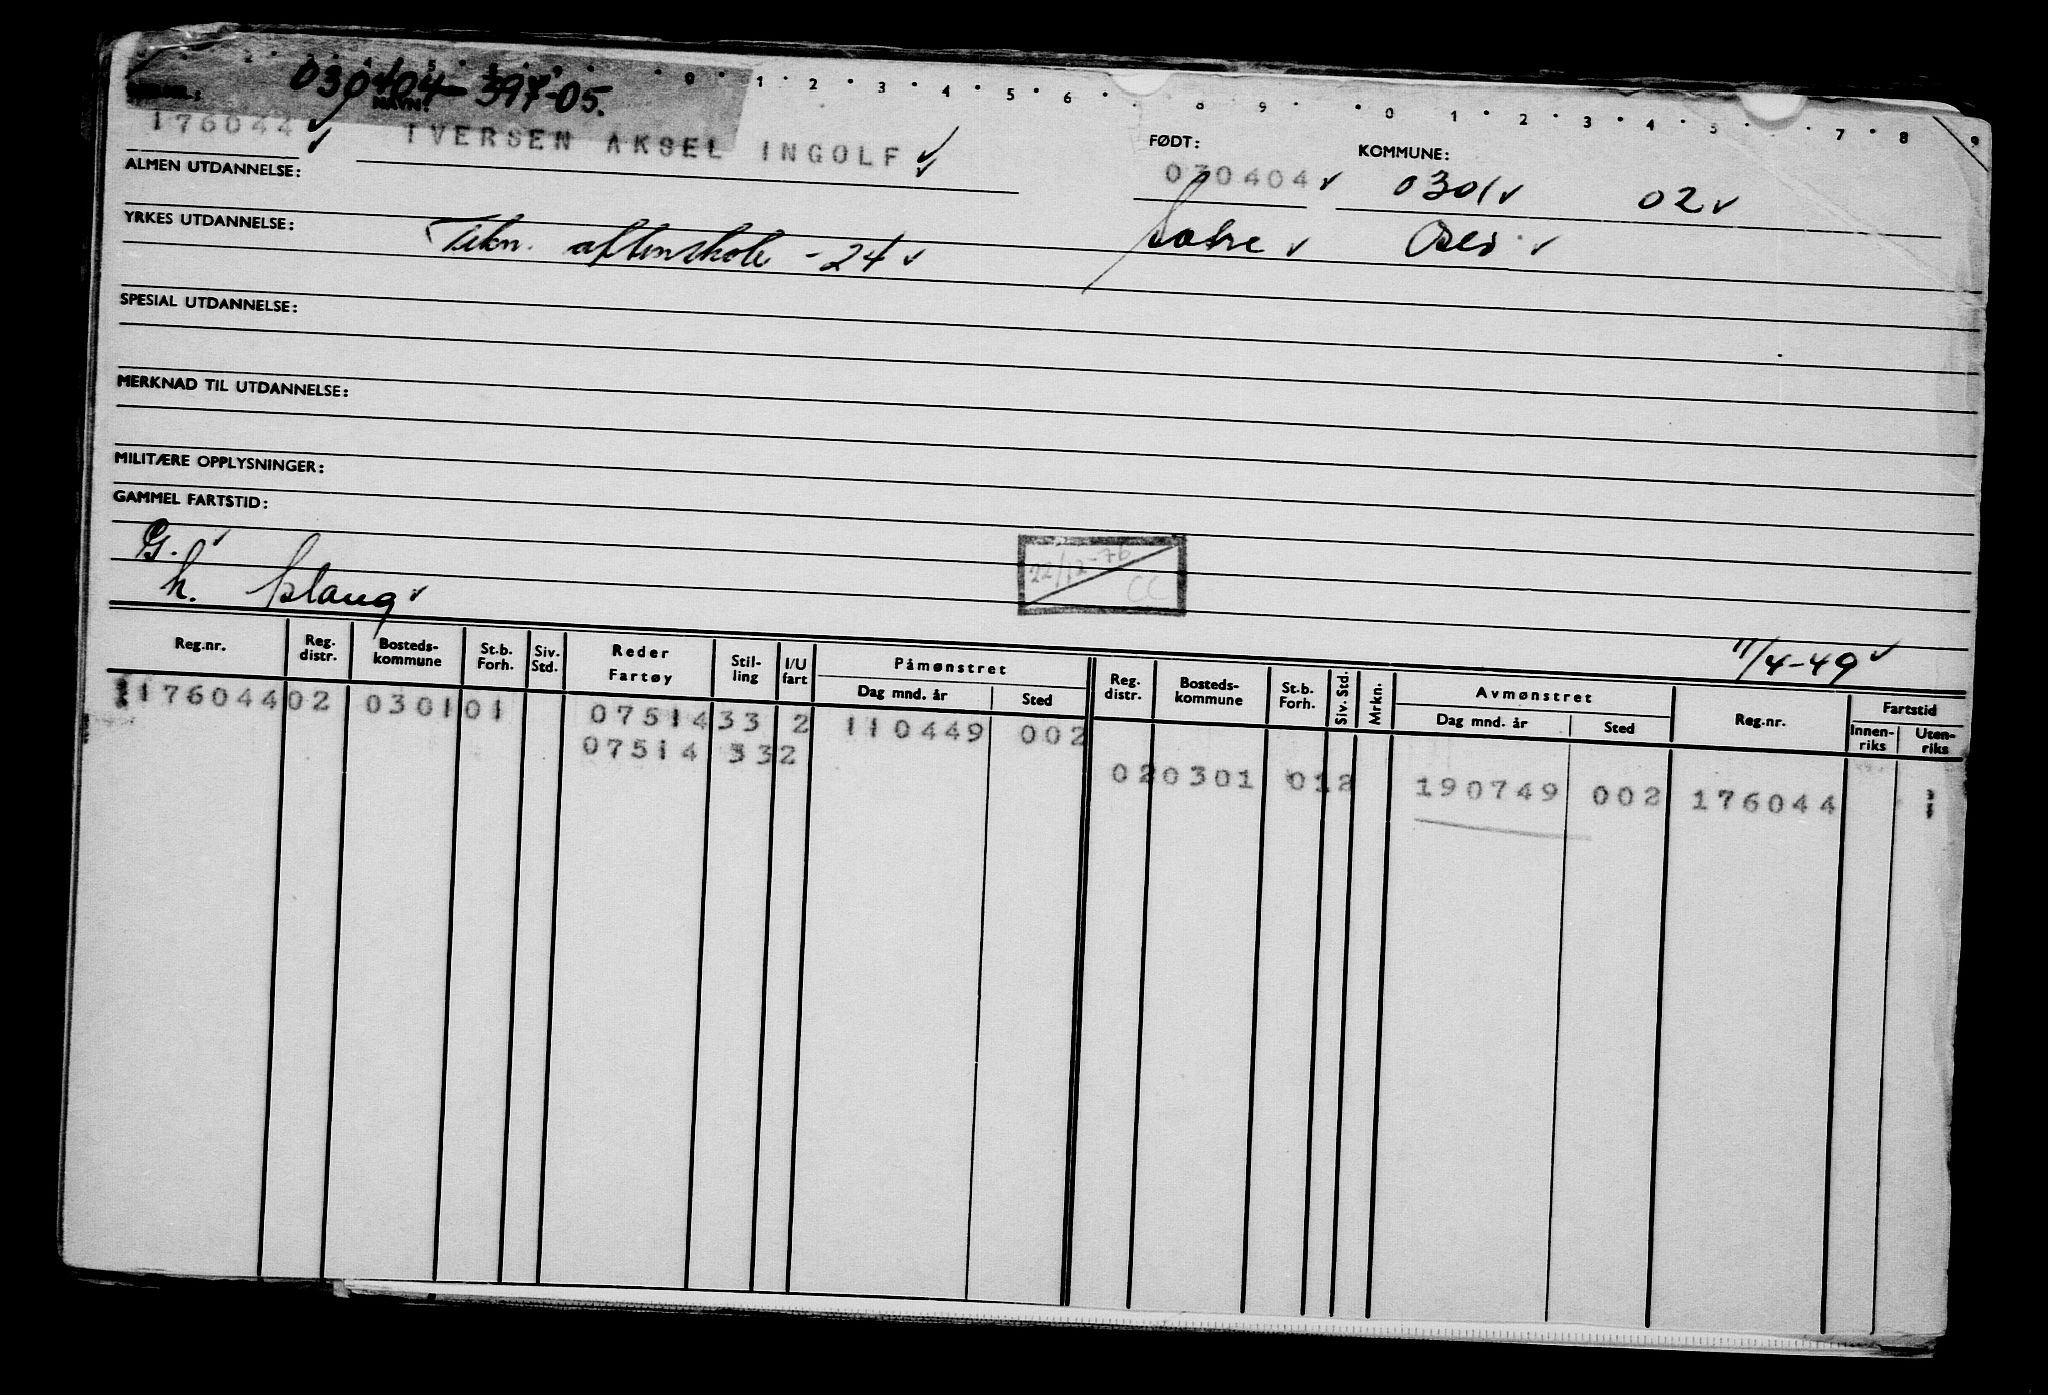 030404-397-05.
NAVN:
176044 IVERSEN AKSEL INGOLF
FØDT: 030404
KOMMUNE: 0301 02
ALMEN UTDANNELSE:
YRKES UTDANNELSE: Tekn. aftenskole -24
Oslo
SPESIAL UTDANNELSE:
MERKNAD TIL UTDANNELSE:
MILITÆRE OPPLYSNINGER:
GAMMEL FARTSTID:
G.
22/12-76 CC
h.
11/4-49
Reg.nr. Reg. distr. Bosteds-kommune St.b. Forh. Siv. Std. Reder Fartøy Stil-ling I/U fart Påmønstret Dag mnd. år Sted Reg. distr. Bosteds-kommune St.b. Forh. Siv. Std. Mrkn. Avmønstret Dag mnd. år Sted Reg.nr. Fartstid Innen-riks Uten-riks
176044 02 0301 01 07514 33 2 110449 002
07514 33 2
02 0301 01 2 190749 002 176044